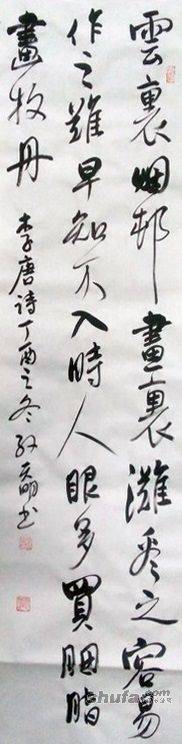 雲裏烟邨畫裏灘看之容易
作之難早知不入時人眼多買胭脂
畫牧丹
李唐詩丁酉之冬书